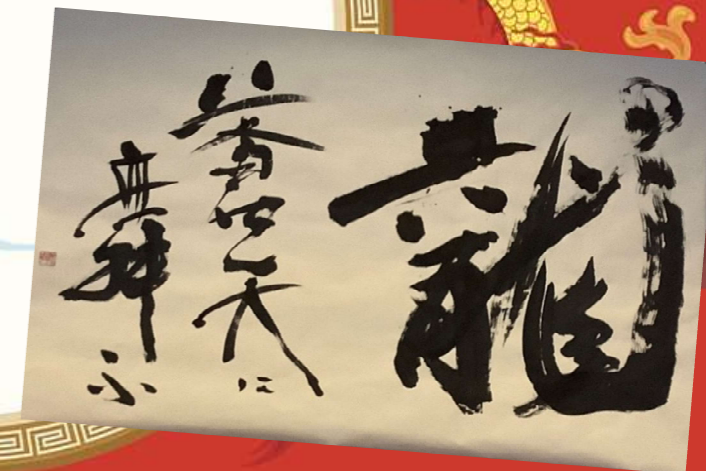 龍
天に
舞ふ